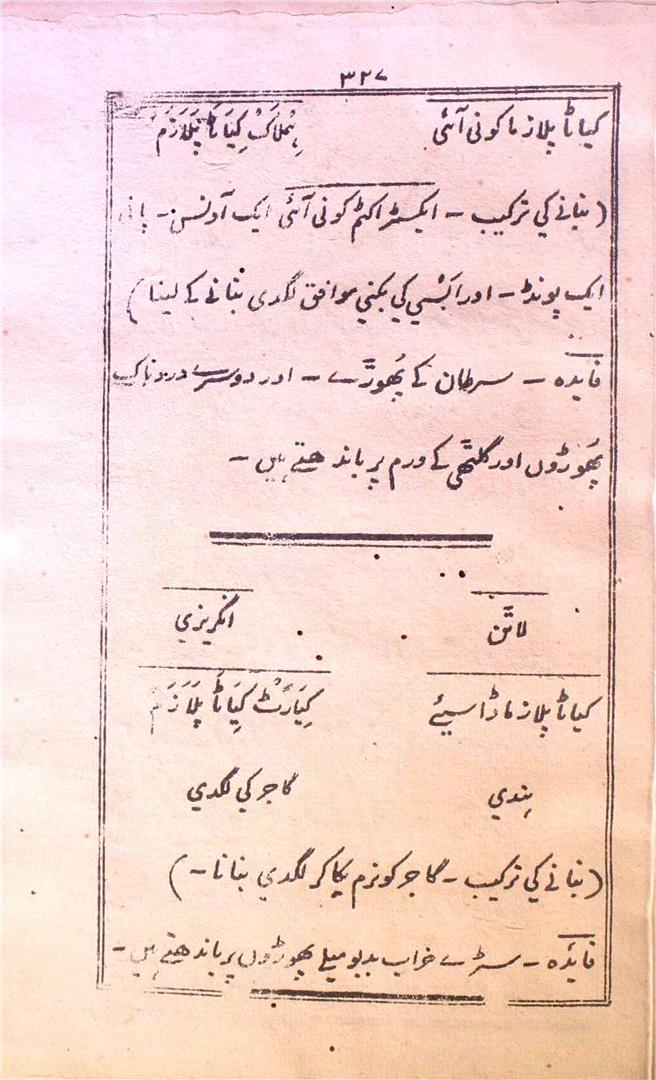 ۳۲۷
کیاٹا پلازما کونی آئی ہِملاکْ کِیَاٹَا پَلَازَمْ
(بنانے کی ترکیب ۔ ایکسٹراکٹم کونی آئی ایک آونس۔ پانی
ایک پونڈ ۔ اور اَلْسِي کي بُکني موافق لگدی بنانے کے لینا)
فایدہ ۔ سرطان کے پھُوڑے ۔ اور دوسرے دردناک
پھُوڑوں اور گلٹھی کے ورم پر باندھتے ہیں ۔
لاٹن انگریزي
کیاٹا پلازما ڈاسیئے کِیَارَٹْ کِیَاٹَا پَلَازَمْ
ہندي گاجر کی لگدي
(بنانے کی ترکیب ۔ گاجر کو نرم پکا کر لگدي بنانا ۔)
فایٔدہ ۔ سڑے خراب بدبو میلے پھوڑوں پر باندھتے ہیں ۔